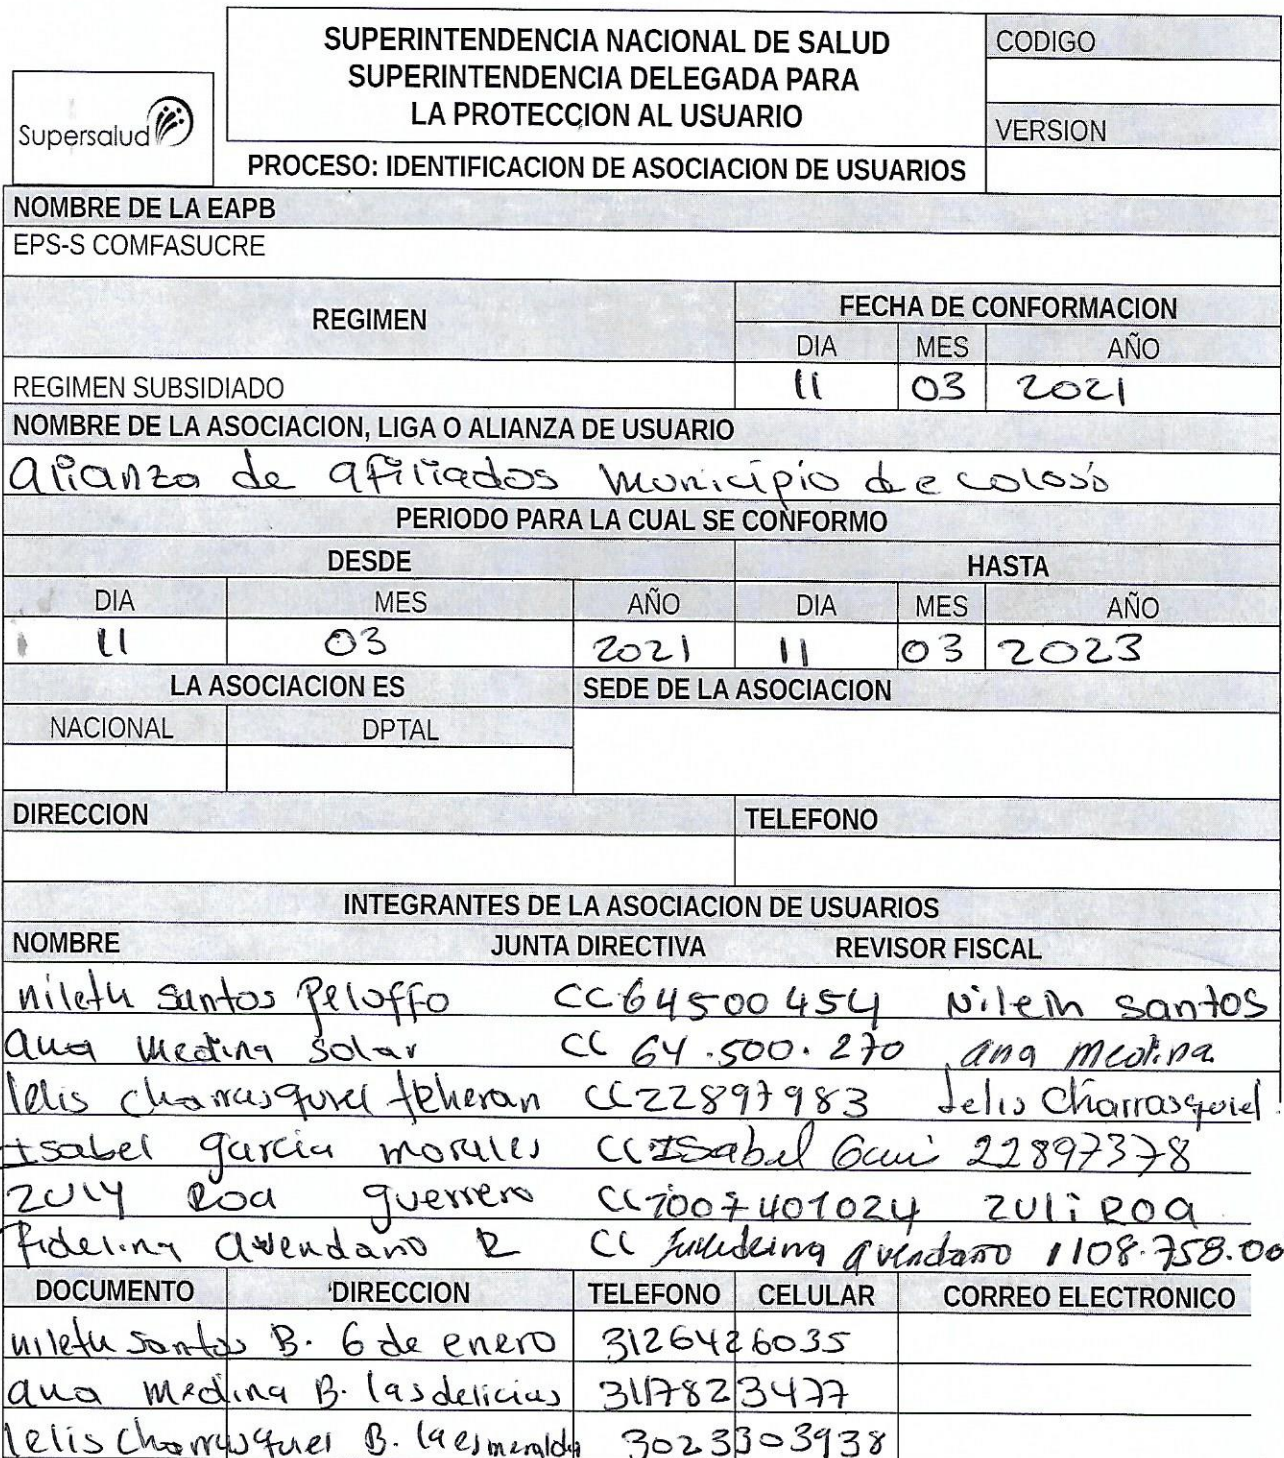 SUPERINTENDENCIA NACIONAL DE SALUD
SUPERINTENDENCIA DELEGADA PARA
LA PROTECCION AL USUARIO
CODIGO
Supersalud
VERSION
PROCESO: IDENTIFICACION DE ASOCIACION DE USUARIOS
NOMBRE DE LA EAPB
EPS-S COMFASUCRE
REGIMEN FECHA DE CONFORMACION
DIA MES AÑO
REGIMEN SUBSIDIADO 11 03 2021
NOMBRE DE LA ASOCIACION, LIGA O ALIANZA DE USUARIO
alianza de afiliados Municipio de colosó
PERIODO PARA LA CUAL SE CONFORMO
DESDE HASTA
DIA MES AÑO DIA MES AÑO
11 03 2021 11 03 2023
LA ASOCIACION ES SEDE DE LA ASOCIACION
NACIONAL DPTAL
DIRECCION TELEFONO
INTEGRANTES DE LA ASOCIACION DE USUARIOS
NOMBRE JUNTA DIRECTIVA REVISOR FISCAL
nileth santos Peloffo CC 64500454 Nileth santos
ana Medina solar CC 64.500.270 ana medina
lelis charrasquiel teheran CC 22897983 Lelis Charrasquiel
Isabel garcia morales CC Isabel 22897378
zuly Roa guerrero CC 1007401024 zuli ROA
fidelina avendano R CC avendano 1108.758.00
DOCUMENTO DIRECCION TELEFONO CELULAR CORREO ELECTRONICO
nileth santos B. 6 de enero 3126426035
ana medina B. las delicias 3117823477
lelis charrasquiel B. la esmeralda 3023303938